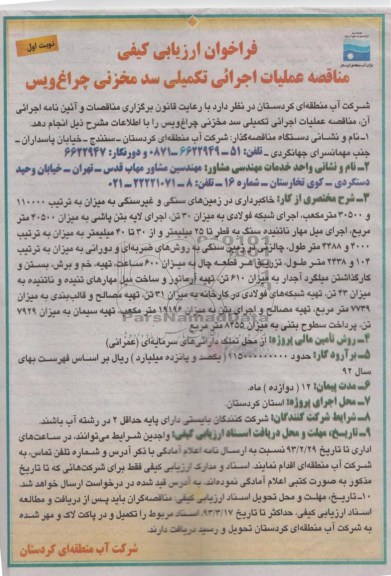 نوبت اول
فراخوان ارزیابی کیفی
مناقصه عملیات اجرائی تکمیلی سد مخزنی چراغ‌ویس
شرکت آب منطقه‌ای کردستان در نظر دارد با رعایت قانون برگزاری مناقصات و آئین نامه اجرائی
آن، مناقصه عملیات اجرائی تکمیلی سد مخزنی چراغ‌ویس را با اطلاعات مشرح ذیل انجام دهد.
۱ـ نام و نشانی دستگاه مناقصه‌گذار: شرکت آب منطقه‌ای کردستان ـ سنندج ـ خیابان پاسداران ـ
جنب مهمانسرای جهانگردی ـ تلفن: ۵۱ ـ ۶۶۲۲۹۴۹ ـ ۰۸۷۱ و دورنگار: ۶۶۲۲۹۴۷
۲ـ نام و نشانی واحد خدمات مهندسی مشاور: مهندسین مشاور مهاب قدس ـ تهران ـ خیابان وحید
دستگردی ـ کوی تخارستان ـ شماره ۱۶ ـ تلفن: ۸ ـ ۲۲۲۲۱۰۷۱ ـ ۰۲۱
۳ـ شرح مختصری از کار: خاکبرداری در زمین‌های سنگی و غیرسنگی به میزان به ترتیب ۱۱۰۰۰۰
و ۳۰۵۰۰ مترمکعب، اجرای شبکه فولادی به میزان ۳۰ تن، اجرای لایه بتن پاشی به میزان ۴۰۵۰۰ متر
مربع، اجرای میل مهار تانتنیده سنگ به قطر تا ۲۵ میلیمتر و از ۳۰ تا ۴۰ میلیمتر به میزان به ترتیب
۲۰۰۰ و ۴۴۸۸ متر طول، چالزنی در زمین‌های سنگی به روش‌های ضربه‌ای و دورانی به میزان به ترتیب
۱۰۴ و ۲۴۳۸ متر طول، تزریق هر قطعه چال به میزان ۶۰۰ ساعت، تهیه، خم و برش، بستن و
کارگذاشتن میلگرد آجدار به میزان ۶۱۰ تن، تهیه آرماتور و ساخت میل مهارهای تنیده و ناتنیده به
میزان ۴۳ تن، تهیه شبکه‌های فولادی در کارخانه به میزان ۳۱ تن، تهیه مصالح و قالب‌بندی به میزان
۷۷۳۹ متر مربع، تهیه مصالح و اجرای بتن به میزان ۱۹۱۹۶ متر مکعب، تهیه سیمان به میزان ۷۹۲۹
تن، پرداخت سطوح بتنی به میزان ۸۲۵۵ متر مربع.
۴ـ روش تأمین مالی پروژه: از محل تملک دارائی‌های سرمایه‌ای (عمرانی)
۵ـ برآورد کار: حدود ۱۱۵۰۰۰۰۰۰۰۰۰ (یکصد و پانزده میلیارد) ریال بر اساس فهرست بهای
سال ۹۲
۶ـ مدت پیمان: ۱۲ (دوازده) ماه.
۷ـ محل اجرای پروژه: استان کردستان.
۸ـ شرایط شرکت کنندگان: شرکت کنندگان بایستی دارای پایه حداقل ۲ در رشته آب باشند.
۹ـ تاریخ، مهلت و محل دریافت اسناد ارزیابی کیفی: واجدین شرایط می‌توانند، در ساعت‌های
اداری تا تاریخ ۹۳/۲/۲۹ نسبت به ارسال نامه اعلام آمادگی با ذکر آدرس و شماره تلفن تماس، به
شرکت آب منطقه‌ای اقدام نمایند. اسناد و مدارک ارزیابی کیفی فقط برای شرکت‌هائی که تا تاریخ
مذکور به صورت کتبی اعلام آمادگی نموده‌اند، به آدرس قید شده در درخواست ارسال خواهد شد.
۱۰ـ تاریخ، مهلت و محل تحویل اسناد ارزیابی کیفی: مناقصه‌گران باید پس از دریافت و مطالعه
اسناد ارزیابی کیفی، حداکثر تا تاریخ ۹۳/۳/۱۷، اسناد مربوط را تکمیل و در پاکت لاک و مهر شده
به شرکت آب منطقه‌ای کردستان تحویل و رسید دریافت دارند.
شرکت آب منطقه‌ای کردستان
ParsNamadData